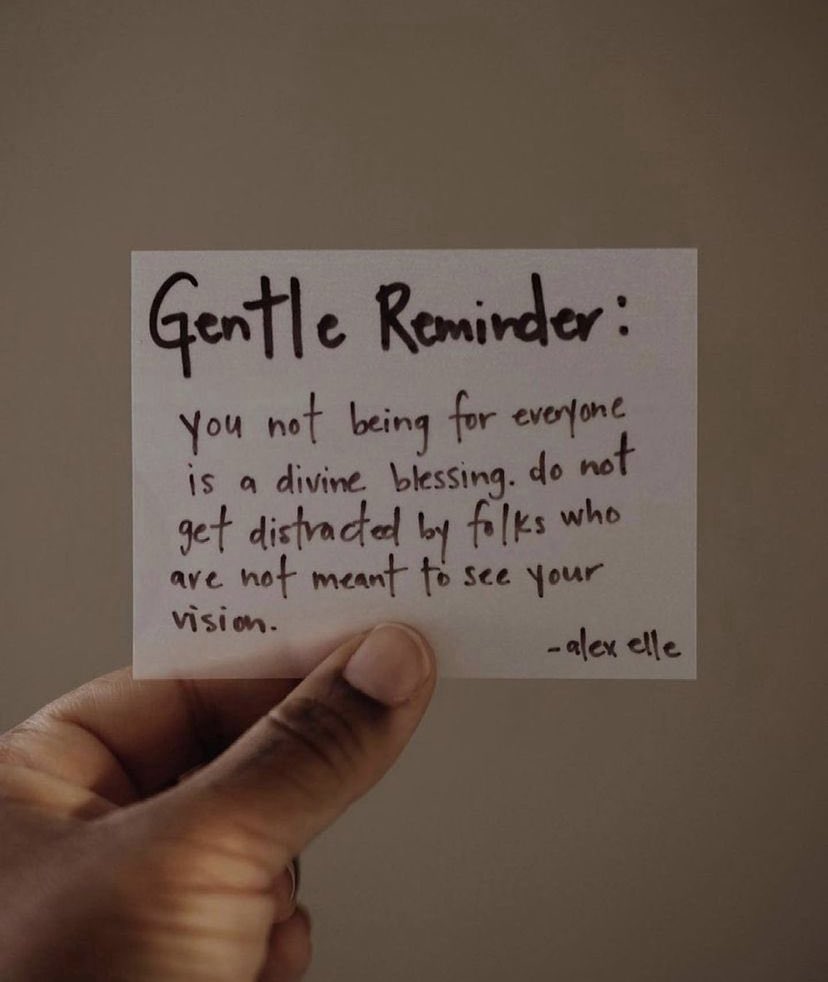 Gentle Reminder:
you not being for everyone
is a divine blessing. do not
get distracted by folks who
are not meant to see your
vision.
-alex elle